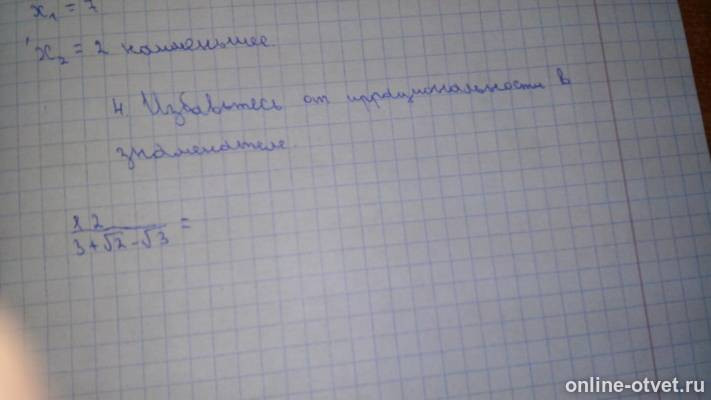 x₁ = 7
x₂ = 2 наименьшее.
4. Избавьтесь от иррациональности в
знаменателе.
2
3+√2-√3 =
online-otvet.ru